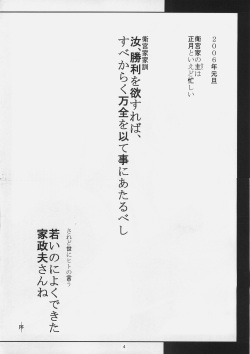 2006年元旦
衛宮家の主は
正月といえど忙しい
衛宮家家訓
汝、勝利を欲すれば、
すべからく万全を以て事にあたるべし
されど世にヒトの言う
若いのによくできた
家政夫さんね
4